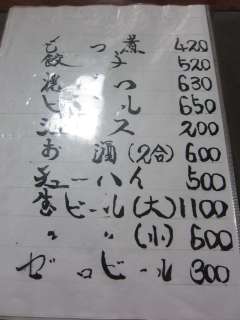 もつ煮 420
餃子 520
焼そば 630
ビール 650
ジュース 200
お酒(2合) 600
チューハイ 500
生ビール(大) 1100
〃 〃 (小) 600
ゼロビール 300